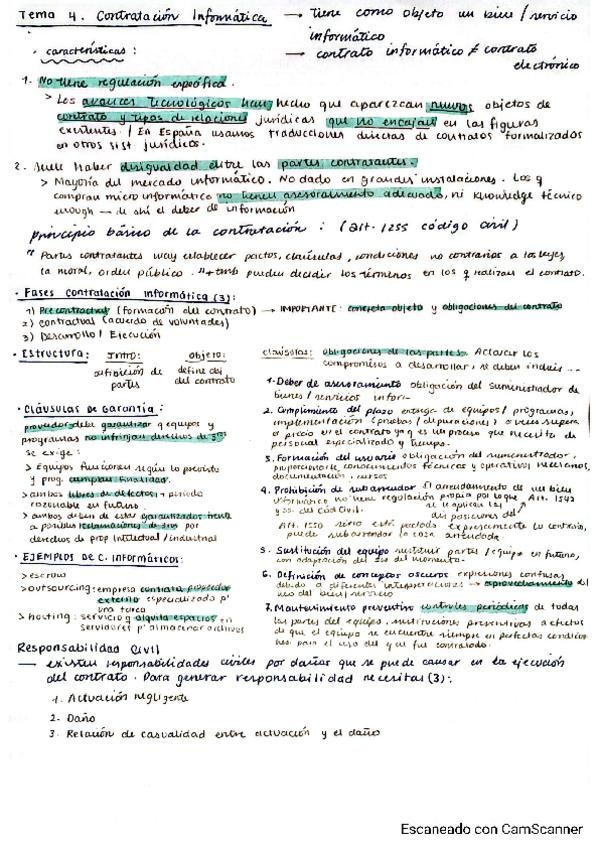 Tema 4. Contratación Informática → Tiene como objeto un bien / servicio
informático
· características : → contrato informático ≠ contrato
electrónico
1. No tiene regulación específica.
> Los avances tecnológicos han hecho que aparezcan nuevos objetos de
contrato y tipos de relaciones jurídicas que no encajan en las figuras
existentes / En España usamos traducciones directas de contratos formalizados
en otros sist. jurídicos.
2. Suele haber desigualdad entre las partes contratantes.
> Mayoría del mercado informático. No dado en grandes instalaciones. Los q
compran micro informática no tienen asesoramiento adecuado, ni knowledge técnico
enough — de ahí el deber de información
principio básico de la contratación : (art. 1255 código civil)
" Partes contratantes way establecer pactos, cláusulas, condiciones no contrarios a las leyes,
la moral, orden público. " + tmb pueden decidir los términos en los q realizan el contrato.
· Fases contratación informática (3):
1) Precontractual (formación del contrato) → IMPORTANTE: concreta objeto y obligaciones del contrato
2) contractual (acuerdo de voluntades)
3) Desarrollo / Ejecución
· Estructura: Intro: objeto:
definición de partes
define obj del contrato
cláusulas: obligaciones de las partes. Aclarar los
compromisos a desarrollar, se deben incluir ...
1. Deber de asesoramiento obligación del suministrador de
bienes / servicios infor.
2. Cumplimiento del plazo entrega de equipos / programas,
implementación (pruebas / depuraciones) a veces supera
el precio en el contrato ya q es un proceso que necesita de
personal especializado y tiempo.
3. Formación del usuario obligación del suministrador,
proporcionarle conocimientos técnicos y operativos necesarios,
documentación, cursos
4. Prohibición de subarrendar El arrendamiento de un bien
informático no tiene regulación propia por lo que Art. 1542
y ss. del Cód Civil. se le aplican las disposiciones del
Art. 1550 si no está pactado expresamente lo contrario,
puede subarrendar la cosa arrendada.
5. Sustitución del equipo sustituir partes / equipo en futuro,
con adaptación del del momento.
6. Definición de conceptos oscuros expresiones confusas
debido a diferentes interpretaciones → aprovechamiento del
uso del bien / servicio
7. Mantenimiento preventivo controles periódicos de todas
las partes del equipo, sustituciones preventivas a efectos
de que el equipo se encuentre siempre en perfectas condicio
nes para el uso del que fue contratado.
· Cláusulas de Garantía :
proveedor debe garantizar q equipos y
programas no infrinjan derechos de 3ºs
se exige :
> Equipos funcionen según lo previsto
y prog. cumplan finalidad.
> ambos libres de defectos + período
razonable en futuro.
> ambos deben de estar garantizados frente
a posibles reclamaciones de 3ros por
derechos de prop intelectual / industrial
· EJEMPLOS DE C. Informáticos:
> escrow
> outsourcing : empresa contrata proveedor
externo especializado pª
una tarea
> hosting : servicio q alquila espacios en
servidores pª almacenar archivos
Responsabilidad Civil
— existen responsabilidades civiles por daños que se puede causar en la ejecución
del contrato. Para generar responsabilidad necesitas (3):
1. Actuación negligente
2. Daño
3. Relación de casualidad entre actuación y el daño
Escaneado con CamScanner